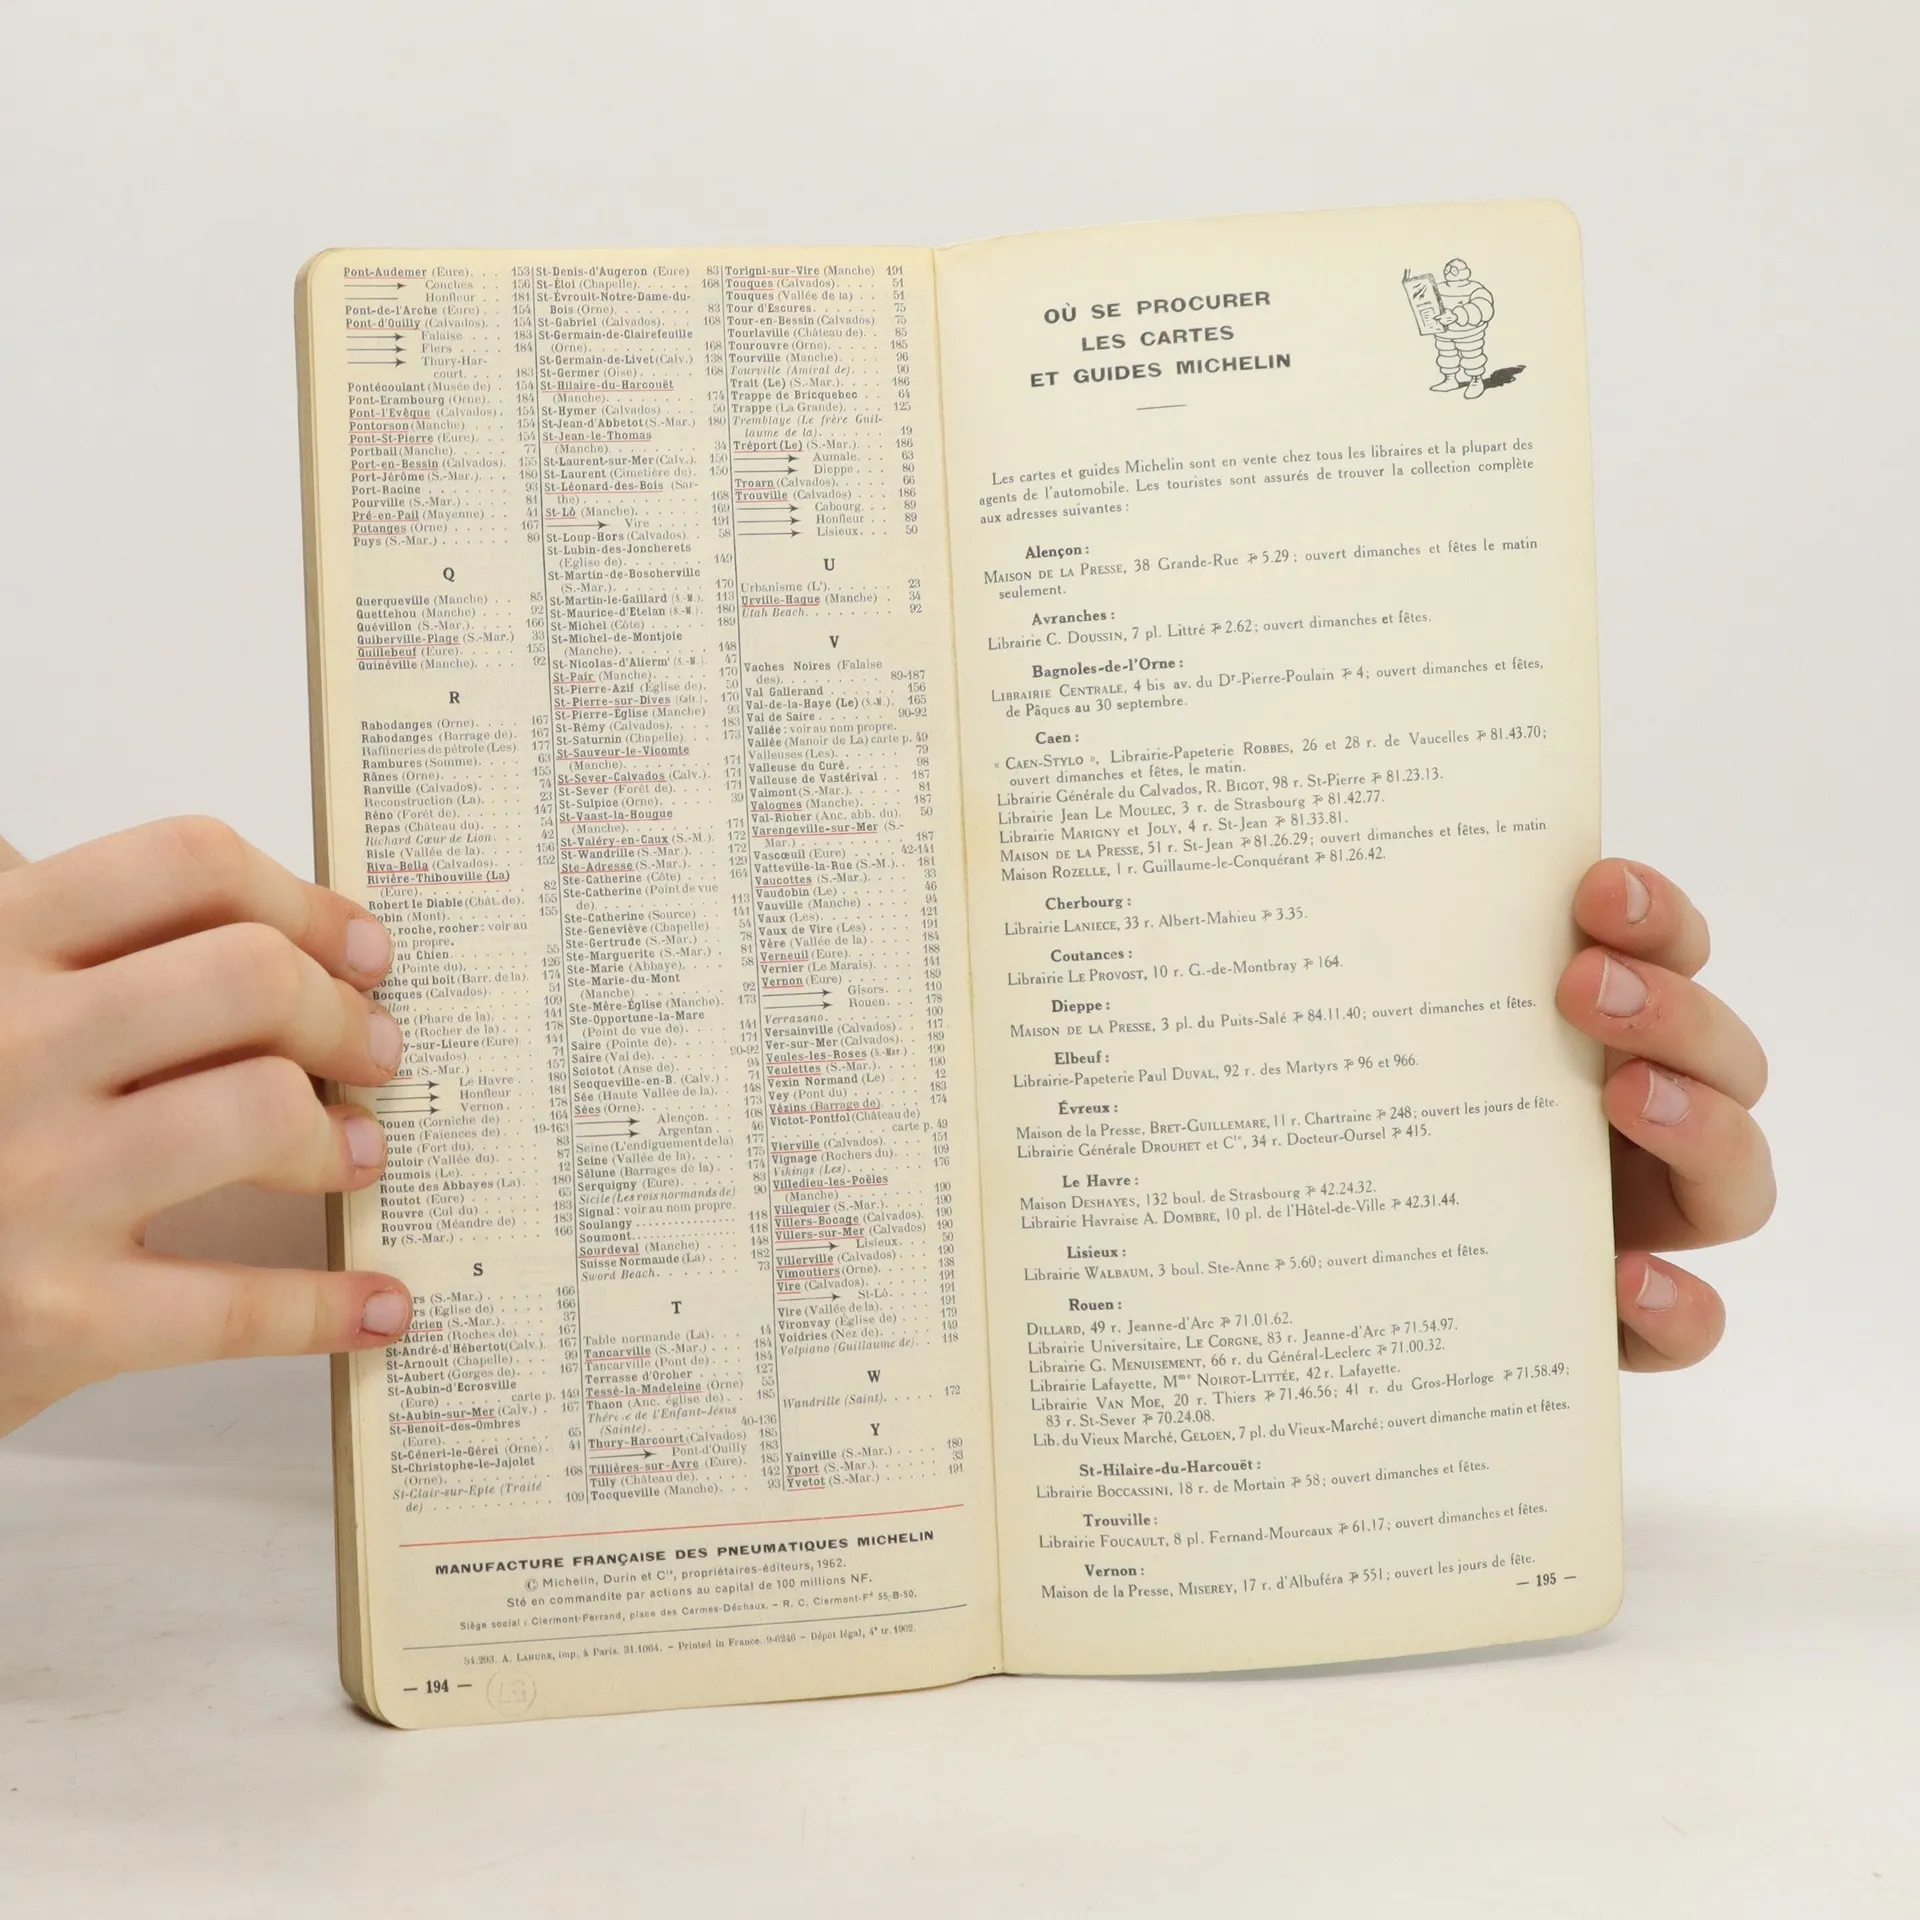 Pont-Audemer (Eure). . . 153
Conches . . 156
Honfleur . . 181
Pont-de-l'Arche (Eure) . . 154
Pont-d'Ouilly (Calvados). . 154
Falaise . . . 183
Flers . . . . 184
Thury-Har-
court. . . . 183
Pontécoulant (Musée de) . 154
Pont-Erambourg (Orne). . 184
Pont-l'Evêque (Calvados). . 154
Pontorson (Manche). . . . 154
Pont-St-Pierre (Eure). . . 154
Portbail (Manche). . . . . 77
Port-en-Bessin (Calvados). 155
Port-Jérôme (S.-Mar.). . . 180
Port-Racine . . . . . . . 93
Pourville (S.-Mar.) . . . . 81
Pré-en-Pail (Mayenne) . . 41
Putanges (Orne) . . . . . 167
Puys (S.-Mar.) . . . . . . 80
Q
Querqueville (Manche) . . 85
Quettehou (Manche) . . . 92
Quévillon (S.-Mar.). . . . 166
Quiberville-Plage (S.-Mar.) 33
Quillebeuf (Eure). . . . . 155
Quinéville (Manche). . . . 92
R
Rabodanges (Orne). . . . 167
Rabodanges (Barrage de). . 167
Raffineries de pétrole (Les) 177
Rambures (Somme). . . . 63
Rânes (Orne). . . . . . . 155
Ranville (Calvados). . . . 74
Reconstruction (La). . . . 23
Réno (Forêt de). . . . . . 147
Repas (Château du). . . . 54
Richard Cœur de Lion. . . 42
Risle (Vallée de la). . . . 156
Riva-Bella (Calvados). . . 152
Rivière-Thibouville (La)
(Eure). . . . . . . . . 82
Robert le Diable (Chât. de). 155
obin (Mont). . . . . . . 155
, roche, rocher : voir au
om propre.
au Chien. . . . . . . 55
(Pointe du). . . . . . 126
oche qui boit (Barr. de la). 174
Rocques (Calvados). . . . 51
llon. . . . . . . . . . 109
ue (Phare de la). . . . . 141
e (Rocher de la). . . . . 178
y-sur-Lieure (Eure) . . 141
(Calvados). . . . . . 71
en (S.-Mar.) . . . . . . 157
Le Havre . . 180
Honfleur . . 181
Vernon . . . 178
Rouen (Corniche de) . . . 164
ouen (Faïences de) . . 19-163
oule (Fort du). . . . . . 83
ouloir (Vallée du). . . . 87
Roumois (Le). . . . . . . 12
Route des Abbayes (La). . 180
Routot (Eure) . . . . . . 65
Rouvre (Col du) . . . . . 183
Rouvrou (Méandre de) . . 183
Ry (S.-Mar.) . . . . . . . 166
S
rs (S.-Mar.) . . . . . . 166
rs (Eglise de) . . . . . 166
Adrien (S.-Mar.). . . . . 37
-Adrien (Roches de). . . . 167
St-André-d'Hébertot (Calv.). 167
St-Arnoult (Chapelle). . . 99
St-Aubert (Gorges de). . . 167
St-Aubin-d'Ecrosville
(Eure) . . . . . carte p. 149
St-Aubin-sur-Mer (Calv.) . 167
St-Benoît-des-Ombres
(Eure). . . . . . . . . 65
St-Céneri-le-Gérei (Orne). . 41
St-Christophe-le-Jajolet
(Orne). . . . . . . . . 168
St-Clair-sur-Epte (Traité
de) . . . . . . . . . . 109
St-Denis-d'Augeron (Eure) 83
St-Éloi (Chapelle). . . . . 168
St-Évroult-Notre-Dame-du-
Bois (Orne). . . . . . . 83
St-Gabriel (Calvados). . . 168
St-Germain-de-Clairefeuille
(Orne). . . . . . . . . 168
St-Germain-de-Livet (Calv.) 138
St-Germer (Oise). . . . . 168
St-Hilaire-du-Harcouët
(Manche). . . . . . . . 174
St-Hymer (Calvados) . . . 50
St-Jean-d'Abbetot (S.-Mar.) 180
St-Jean-le-Thomas
(Manche). . . . . . . . 34
St-Laurent-sur-Mer (Calv.). 150
St-Laurent (Cimetière de). 150
St-Léonard-des-Bois (Sar-
the). . . . . . . . . . 168
St-Lô (Manche). . . . . . 169
Vire . . . . 191
St-Loup-Hors (Calvados). . 58
St-Lubin-des-Joncherets
(Eglise de). . . . . . . 149
St-Martin-de-Boscherville
(S.-Mar.). . . . . . . . 170
St-Martin-le-Gaillard (S.-M.). 113
St-Maurice-d'Etelan (S.-M.). 180
St-Michel (Côte) . . . . . 189
St-Michel-de-Montjoie
(Manche). . . . . . . . 148
St-Nicolas-d'Aliermt (S.-M.). 47
St-Pair (Manche). . . . . 170
St-Pierre-Azif (Église de). 50
St-Pierre-sur-Dives (Calv.). 170
St-Pierre-Église (Manche) 93
St-Rémy (Calvados). . . . 183
St-Saturnin (Chapelle). . . 173
St-Sauveur-le-Vicomte
(Manche). . . . . . . . 171
St-Sever-Calvados (Calv.). 171
St-Sever (Forêt de). . . . 171
St-Sulpice (Orne). . . . . 39
St-Vaast-la-Hougue
(Manche). . . . . . . . 171
St-Valéry-en-Caux (S.-M.). 172
St-Wandrille (S.-Mar.). . . 172
Ste-Adresse (S.-Mar.). . . 129
Ste-Catherine (Côte) . . . 164
Ste-Catherine (Point de vue
de). . . . . . . . . . . 113
Ste-Catherine (Source) . . 141
Ste-Geneviève (Chapelle) . 54
Ste-Gertrude (S.-Mar.) . . 78
Ste-Marguerite (S.-Mar.) . 81
Ste-Marie (Abbaye). . . . 58
Ste-Marie-du-Mont
(Manche). . . . . . . . 92
Ste-Mère-Église (Manche). 173
Ste-Opportune-la-Mare
(Point de vue de). . . . 141
Saire (Pointe de). . . . . 171
Saire (Val de). . . . . 90-92
Sciotot (Anse de). . . . . 94
Secqueville-en-B. (Calv.) . 71
Sée (Haute Vallée de la). . 148
Sées (Orne). . . . . . . . 173
Alençon. . . 108
Argentan . . 46
Seine (L'endiguement de la) 177
Seine (Vallée de la). . . . 175
Sélune (Barrages de la). . 174
Serquigny (Eure). . . . . 83
Sicile (Les rois normands de) 90
Signal : voir au nom propre.
Soulangy . . . . . . . . . 118
Soumont. . . . . . . . . . 118
Sourdeval (Manche) . . . 148
Suisse Normande (La). . . 182
Sword Beach. . . . . . . 73
T
Table normande (La). . . 14
Tancarville (S.-Mar.). . . 184
Tancarville (Pont de) . . . 184
Terrasse d'Orcher . . . . 127
Tessé-la-Madeleine (Orne) 55
Thaon (Anc. église de). . . 185
Thérèse de l'Enfant-Jésus
(Sainte). . . . . . . 40-136
Thury-Harcourt (Calvados) 185
Pont-d'Ouilly 183
Tillières-sur-Avre (Eure). . 185
Tilly (Château de). . . . . 142
Tocqueville (Manche). . . 93
Torigni-sur-Vire (Manche) 191
Touques (Calvados). . . . 51
Touques (Vallée de la) . . 51
Tour d'Escures. . . . . . 75
Tour-en-Bessin (Calvados) 75
Tourlaville (Château de). . 85
Tourouvre (Orne). . . . . 185
Tourville (Manche). . . . 96
Tourville (Amiral de). . . 90
Trait (Le) (S.-Mar.). . . . 186
Trappe de Bricquebec . . 64
Trappe (La Grande). . . . 125
Tremblaye (Le frère Guil-
laume de la). . . . . . . 19
Tréport (Le) (S.-Mar.). . . 186
Aumale. . . 63
Dieppe. . . 80
Troarn (Calvados). . . . . 66
Trouville (Calvados) . . . 186
Cabourg. . . 89
Honfleur . . 89
Lisieux. . . 50
U
Urbanisme (L'). . . . . . 23
Urville-Hague (Manche) . 34
Utah Beach. . . . . . . . 92
V
Vaches Noires (Falaise
des). . . . . . . . . 89-187
Val Gallerand . . . . . . 156
Val-de-la-Haye (Le) (S.-M.). 165
Val de Saire . . . . . . 90-92
Vallée : voir au nom propre.
Vallée (Manoir de La) carte p. 49
Valleuses (Les). . . . . . 79
Valleuse du Curé. . . . . 98
Valleuse de Vastérival . . 187
Valmont (S.-Mar.). . . . . 81
Valognes (Manche). . . . 187
Val-Richer (Anc. abb. du). 50
Varengeville-sur-Mer (S.-
Mar.) . . . . . . . . . 187
Vascœuil (Eure) . . . . 42-141
Vatteville-la-Rue (S.-M.). . 181
Vaucottes (S.-Mar.). . . . 33
Vaudobin (Le) . . . . . . 46
Vauville (Manche) . . . . 94
Vaux (Les). . . . . . . . 121
Vaux de Vire (Les). . . . 191
Vère (Vallée de la). . . . 184
Verneuil (Eure). . . . . . 188
Vernier (Le Marais). . . . 141
Vernon (Eure) . . . . . . 189
Gisors. . . 110
Rouen. . . 178
Verrazano. . . . . . . . 100
Versainville (Calvados). . 117
Ver-sur-Mer (Calvados). . 189
Veules-les-Roses (S.-Mar.) . 190
Veulettes (S.-Mar.). . . . 190
Vexin Normand (Le) . . . 12
Vey (Pont du) . . . . . . 183
Vézins (Barrage de). . . . 174
Victot-Pontfol (Château de)
. . . . . . . . carte p. 49
Vierville (Calvados). . . . 151
Vignage (Rochers du). . . 109
Vikings (Les). . . . . . . 176
Villedieu-les-Poëles
(Manche) . . . . . . . 190
Villequier (S.-Mar.). . . . 190
Villers-Bocage (Calvados). 190
Villers-sur-Mer (Calvados) 190
Lisieux. . . 50
Villerville (Calvados) . . . 190
Vimoutiers (Orne). . . . . 138
Vire (Calvados). . . . . . 191
St-Lô. . . . 191
Vire (Vallée de la). . . . . 191
Vironvay (Église de) . . . 179
Voidries (Nez de). . . . . 149
Volpiano (Guillaume de). . 118
W
Wandrille (Saint). . . . . 172
Y
Yainville (S.-Mar.) . . . . 180
Yport (S.-Mar.). . . . . . 33
Yvetot (S.-Mar.) . . . . . 191
MANUFACTURE FRANÇAISE DES PNEUMATIQUES MICHELIN
© Michelin, Durin et Cie, propriétaires-éditeurs, 1962.
Sté en commandite par actions au capital de 100 millions NF.
Siège social : Clermont-Ferrand, place des Carmes-Déchaux. – R. C. Clermont-Fd 55-B-50.
54.293. A. LAHURE, imp. à Paris. 31.1064. – Printed in France. 9-6246 – Dépôt légal, 4e tr. 1962.
— 194 —
OÙ SE PROCURER
LES CARTES
ET GUIDES MICHELIN
Les cartes et guides Michelin sont en vente chez tous les libraires et la plupart des
agents de l'automobile. Les touristes sont assurés de trouver la collection complète
aux adresses suivantes :
Alençon :
MAISON DE LA PRESSE, 38 Grande-Rue 5.29 ; ouvert dimanches et fêtes le matin
seulement.
Avranches :
Librairie C. DOUSSIN, 7 pl. Littré 2.62; ouvert dimanches et fêtes.
Bagnoles-de-l'Orne :
LIBRAIRIE CENTRALE, 4 bis av. du Dr-Pierre-Poulain 4; ouvert dimanches et fêtes,
de Pâques au 30 septembre.
Caen :
« CAEN-STYLO », Librairie-Papeterie ROBBES, 26 et 28 r. de Vaucelles 81.43.70;
ouvert dimanches et fêtes, le matin.
Librairie Générale du Calvados, R. BIGOT, 98 r. St-Pierre 81.23.13.
Librairie Jean LE MOULEC, 3 r. de Strasbourg 81.42.77.
Librairie MARIGNY et JOLY, 4 r. St-Jean 81.33.81.
MAISON DE LA PRESSE, 51 r. St-Jean 81.26.29; ouvert dimanches et fêtes, le matin
Maison ROZELLE, 1 r. Guillaume-le-Conquérant 81.26.42.
Cherbourg :
Librairie LANIECE, 33 r. Albert-Mahieu 3.35.
Coutances :
Librairie LE PROVOST, 10 r. G.-de-Montbray 164.
Dieppe :
MAISON DE LA PRESSE, 3 pl. du Puits-Salé 84.11.40; ouvert dimanches et fêtes.
Elbeuf :
Librairie-Papeterie Paul DUVAL, 92 r. des Martyrs 96 et 966.
Évreux :
Maison de la Presse, BRET-GUILLEMARE, 11 r. Chartraine 248; ouvert les jours de fête.
Librairie Générale DROUHET et Cie, 34 r. Docteur-Oursel 415.
Le Havre :
Maison DESHAYES, 132 boul. de Strasbourg 42.24.32.
Librairie Havraise A. DOMBRE, 10 pl. de l'Hôtel-de-Ville 42.31.44.
Lisieux :
Librairie WALBAUM, 3 boul. Ste-Anne 5.60; ouvert dimanches et fêtes.
Rouen :
DILLARD, 49 r. Jeanne-d'Arc 71.01.62.
Librairie Universitaire, LE CORGNE, 83 r. Jeanne-d'Arc 71.54.97.
Librairie G. MENUISEMENT, 66 r. du Général-Leclerc 71.00.32.
Librairie Lafayette, Mme NOIROT-LITTÉE, 42 r. Lafayette.
Librairie VAN MOE, 20 r. Thiers 71.46.56; 41 r. du Gros-Horloge 71.58.49;
83 r. St-Sever 70.24.08.
Lib. du Vieux Marché, GELOEN, 7 pl. du Vieux-Marché; ouvert dimanche matin et fêtes.
St-Hilaire-du-Harcouët :
Librairie BOCCASSINI, 18 r. de Mortain 58; ouvert dimanches et fêtes.
Trouville :
Librairie FOUCAULT, 8 pl. Fernand-Moureaux 61.17; ouvert dimanches et fêtes.
Vernon :
Maison de la Presse, MISEREY, 17 r. d'Albuféra 551; ouvert les jours de fête.
— 195 —